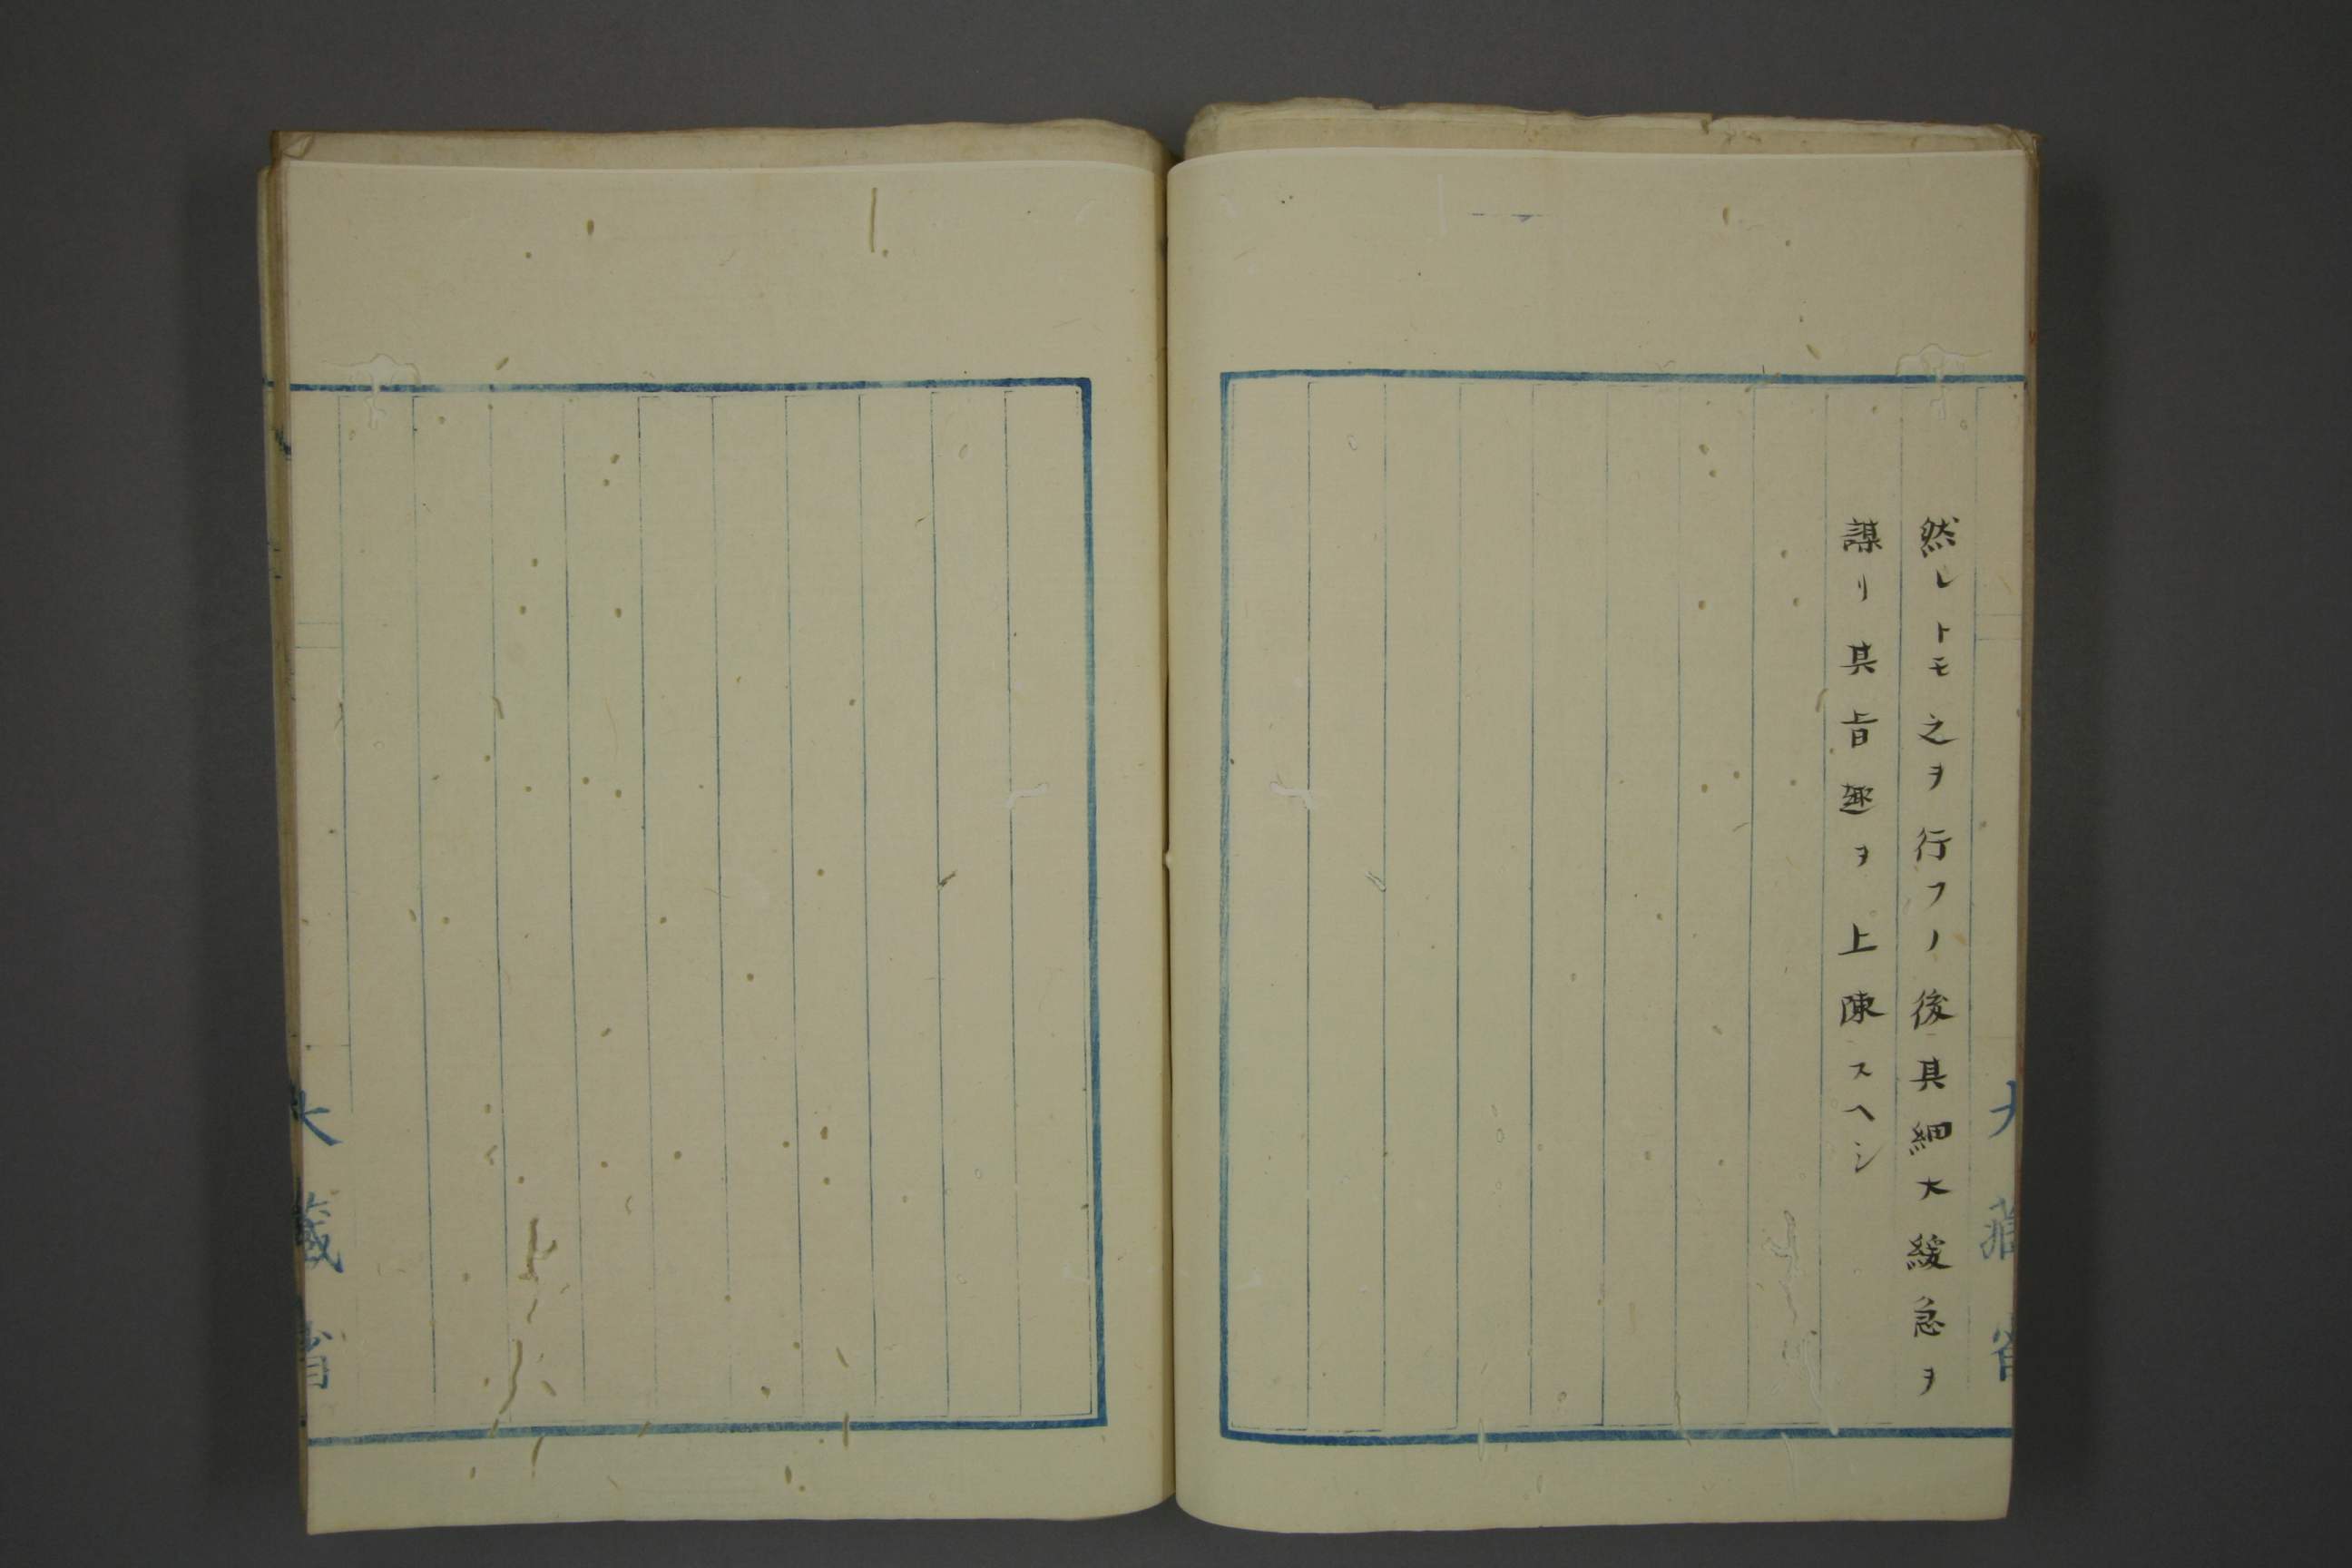 然レトモ之ヲ行フノ後其細大緩急ヲ
謀リ其旨趣ヲ上陳スヘシ
大藏省
大藏省